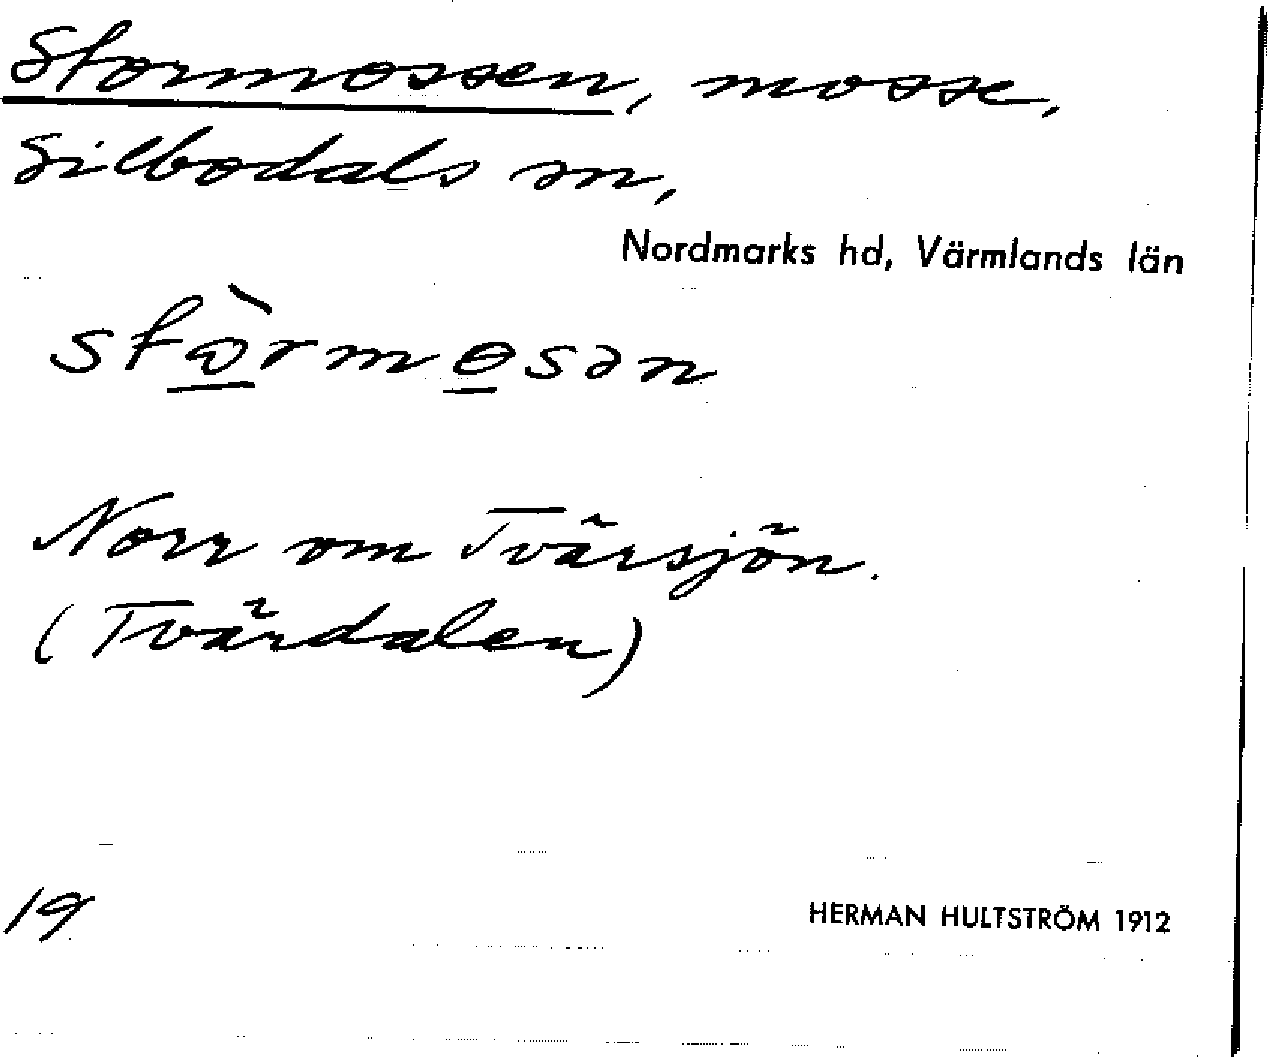 Stormossen, mosse,
Silbodals sn,
Nordmarks hd, Värmlands län
stὼrmɵsən
Norr om Tvärsjön.
(Tvärdalen)
19
HERMAN HULTSTRÖM 1912